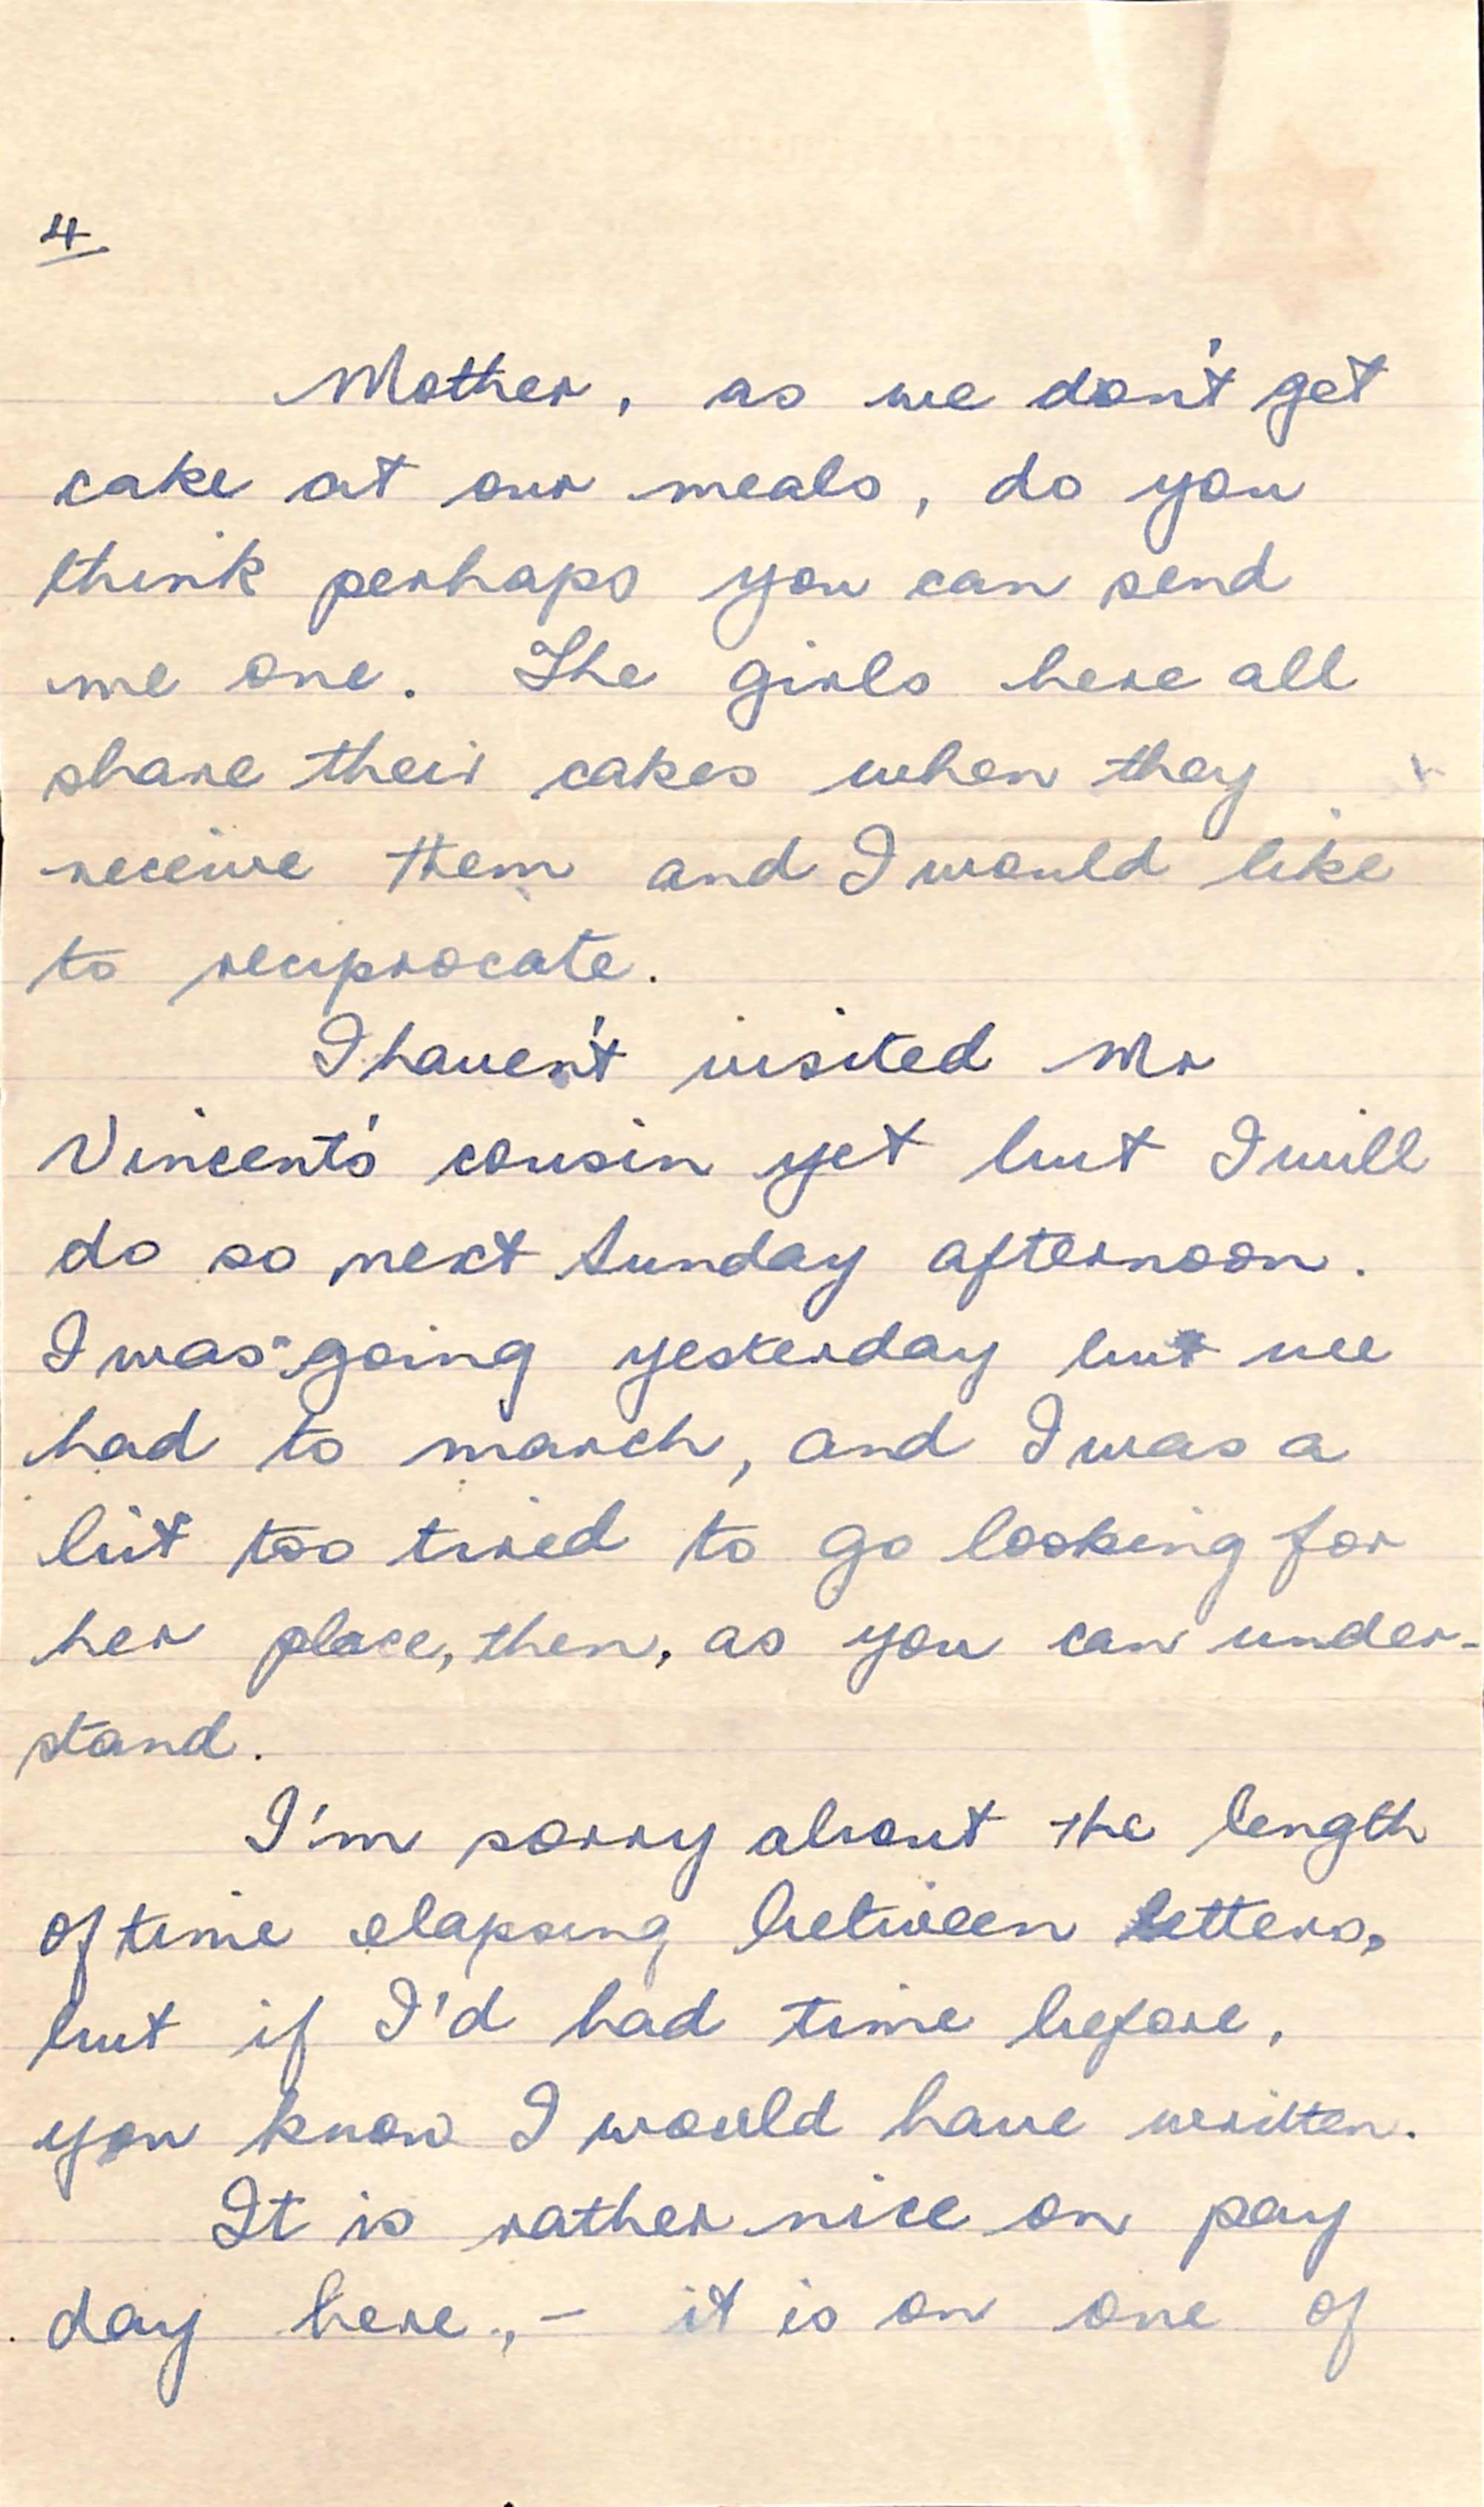 4
Mother, as we don't get
cake at our meals, do you
think perhaps you can send
me one. The girls here all
share their cakes when they
receive them and I would like
to reciprocate.
I haven't visited Mr
Vincent's cousin yet but I will
do so next Sunday afternoon.
I was going yesterday but we
had to march, and I was a
bit too tired to go looking for
her place, then, as you can under-
stand.
I'm sorry about the length
of time elapsing between letters,
but if I'd had time before,
you know I would have written.
It is rather nice on pay
day here, - it is on one of